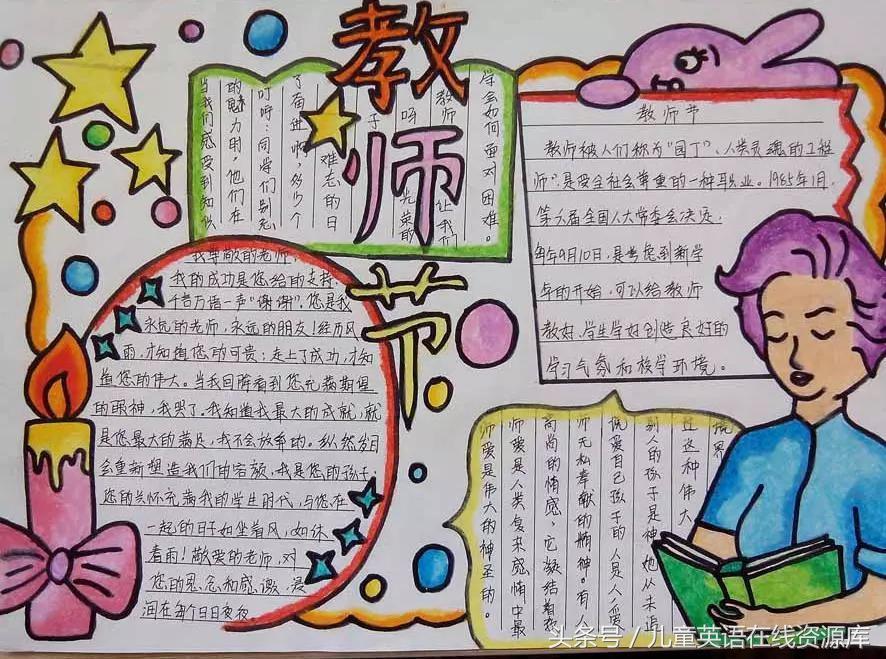 教师节
当我们感受到知识
的魅力时,他们在
叮咛:同学们别忘
了奋进啊,多少个
难忘的日
子
呀 光荣的
教师 让我们
学会如何面对困难。
教师节
教师被人们称为"园丁"、人类灵魂的工程
师",是受全社会尊重的一种职业。1985年1月,
第六届全国人大常委会决定,
每年9月10日,是考虑到新学
年的开始,可以给教师
教好、学生学好创造良好的
学习气氛和校学环境。
我尊敬的老师
我的成功是您给的支持,
千言万语一声"谢谢",您是我
永远的老师,永远的朋友!经历风
雨,才知道您的可贵;走上了成功,才知
道您的伟大。当我回眸看到您充满期望
的眼神,我哭了。我知道我最大的成就,就
是您最大的满足,我不会放弃的。纵然岁月
会重新塑造我们的容颜,我是您的孩子;
您的关怀充满我的学生时代,与您在
一起的日子如坐着风,如沐
春雨!敬爱的老师,对
您的思念和感激,浸
润在每个日日夜夜
师爱是伟大的神圣的。
师爱是人类复杂感情中最
高尚的情感,它凝结着教
师无私奉献的精神。有人
说爱自己孩子的人是人,爱
别人的孩子是神,她从未追
过这种伟大
头条号/儿童英语在线资源库